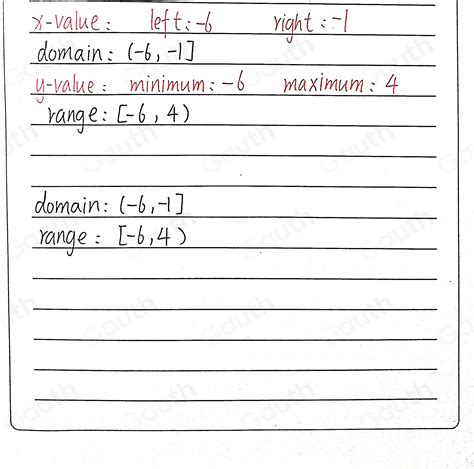 x-value: left: -6 right: -1
domain: (-6, -1]
y-value: minimum: -6 maximum: 4
range: [-6, 4)
domain: (-6, -1]
range: [-6, 4)